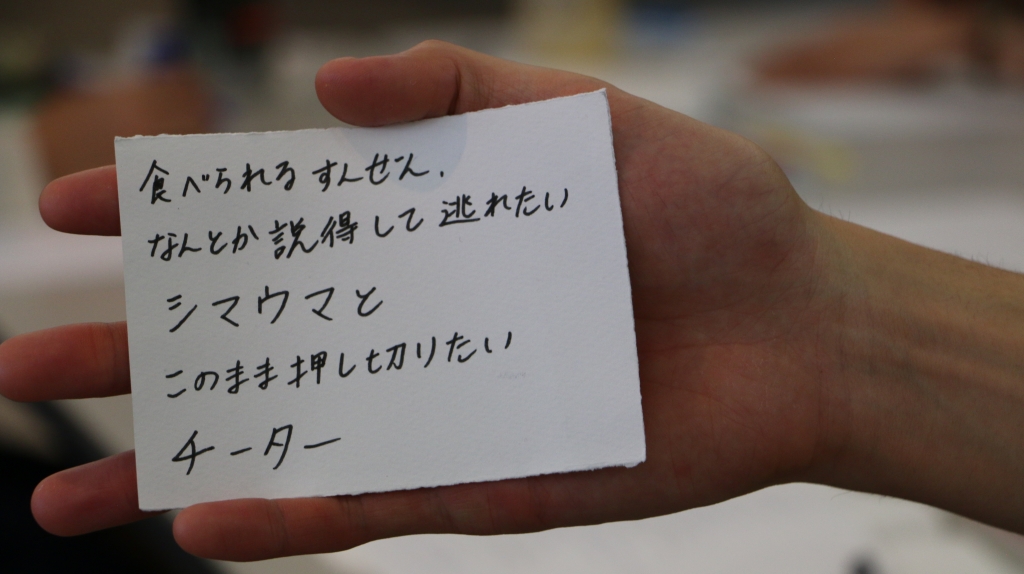 食べられるすんぜん.
なんとか説得して逃れたい
シマウマと
このまま押し切りたい
チーター